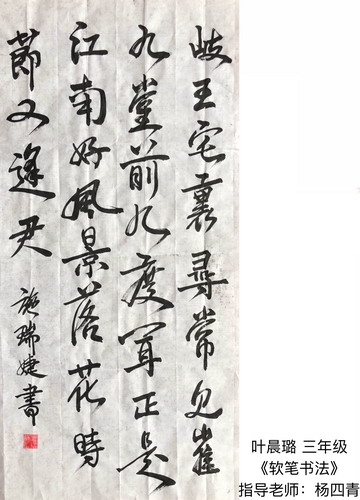 歧王宅裏尋常見崔
九堂前九度聞正是
江南好風景落花時
節又逢君
施瑞婕書
叶晨璐 三年级
《软笔书法》
指导老师：杨四青